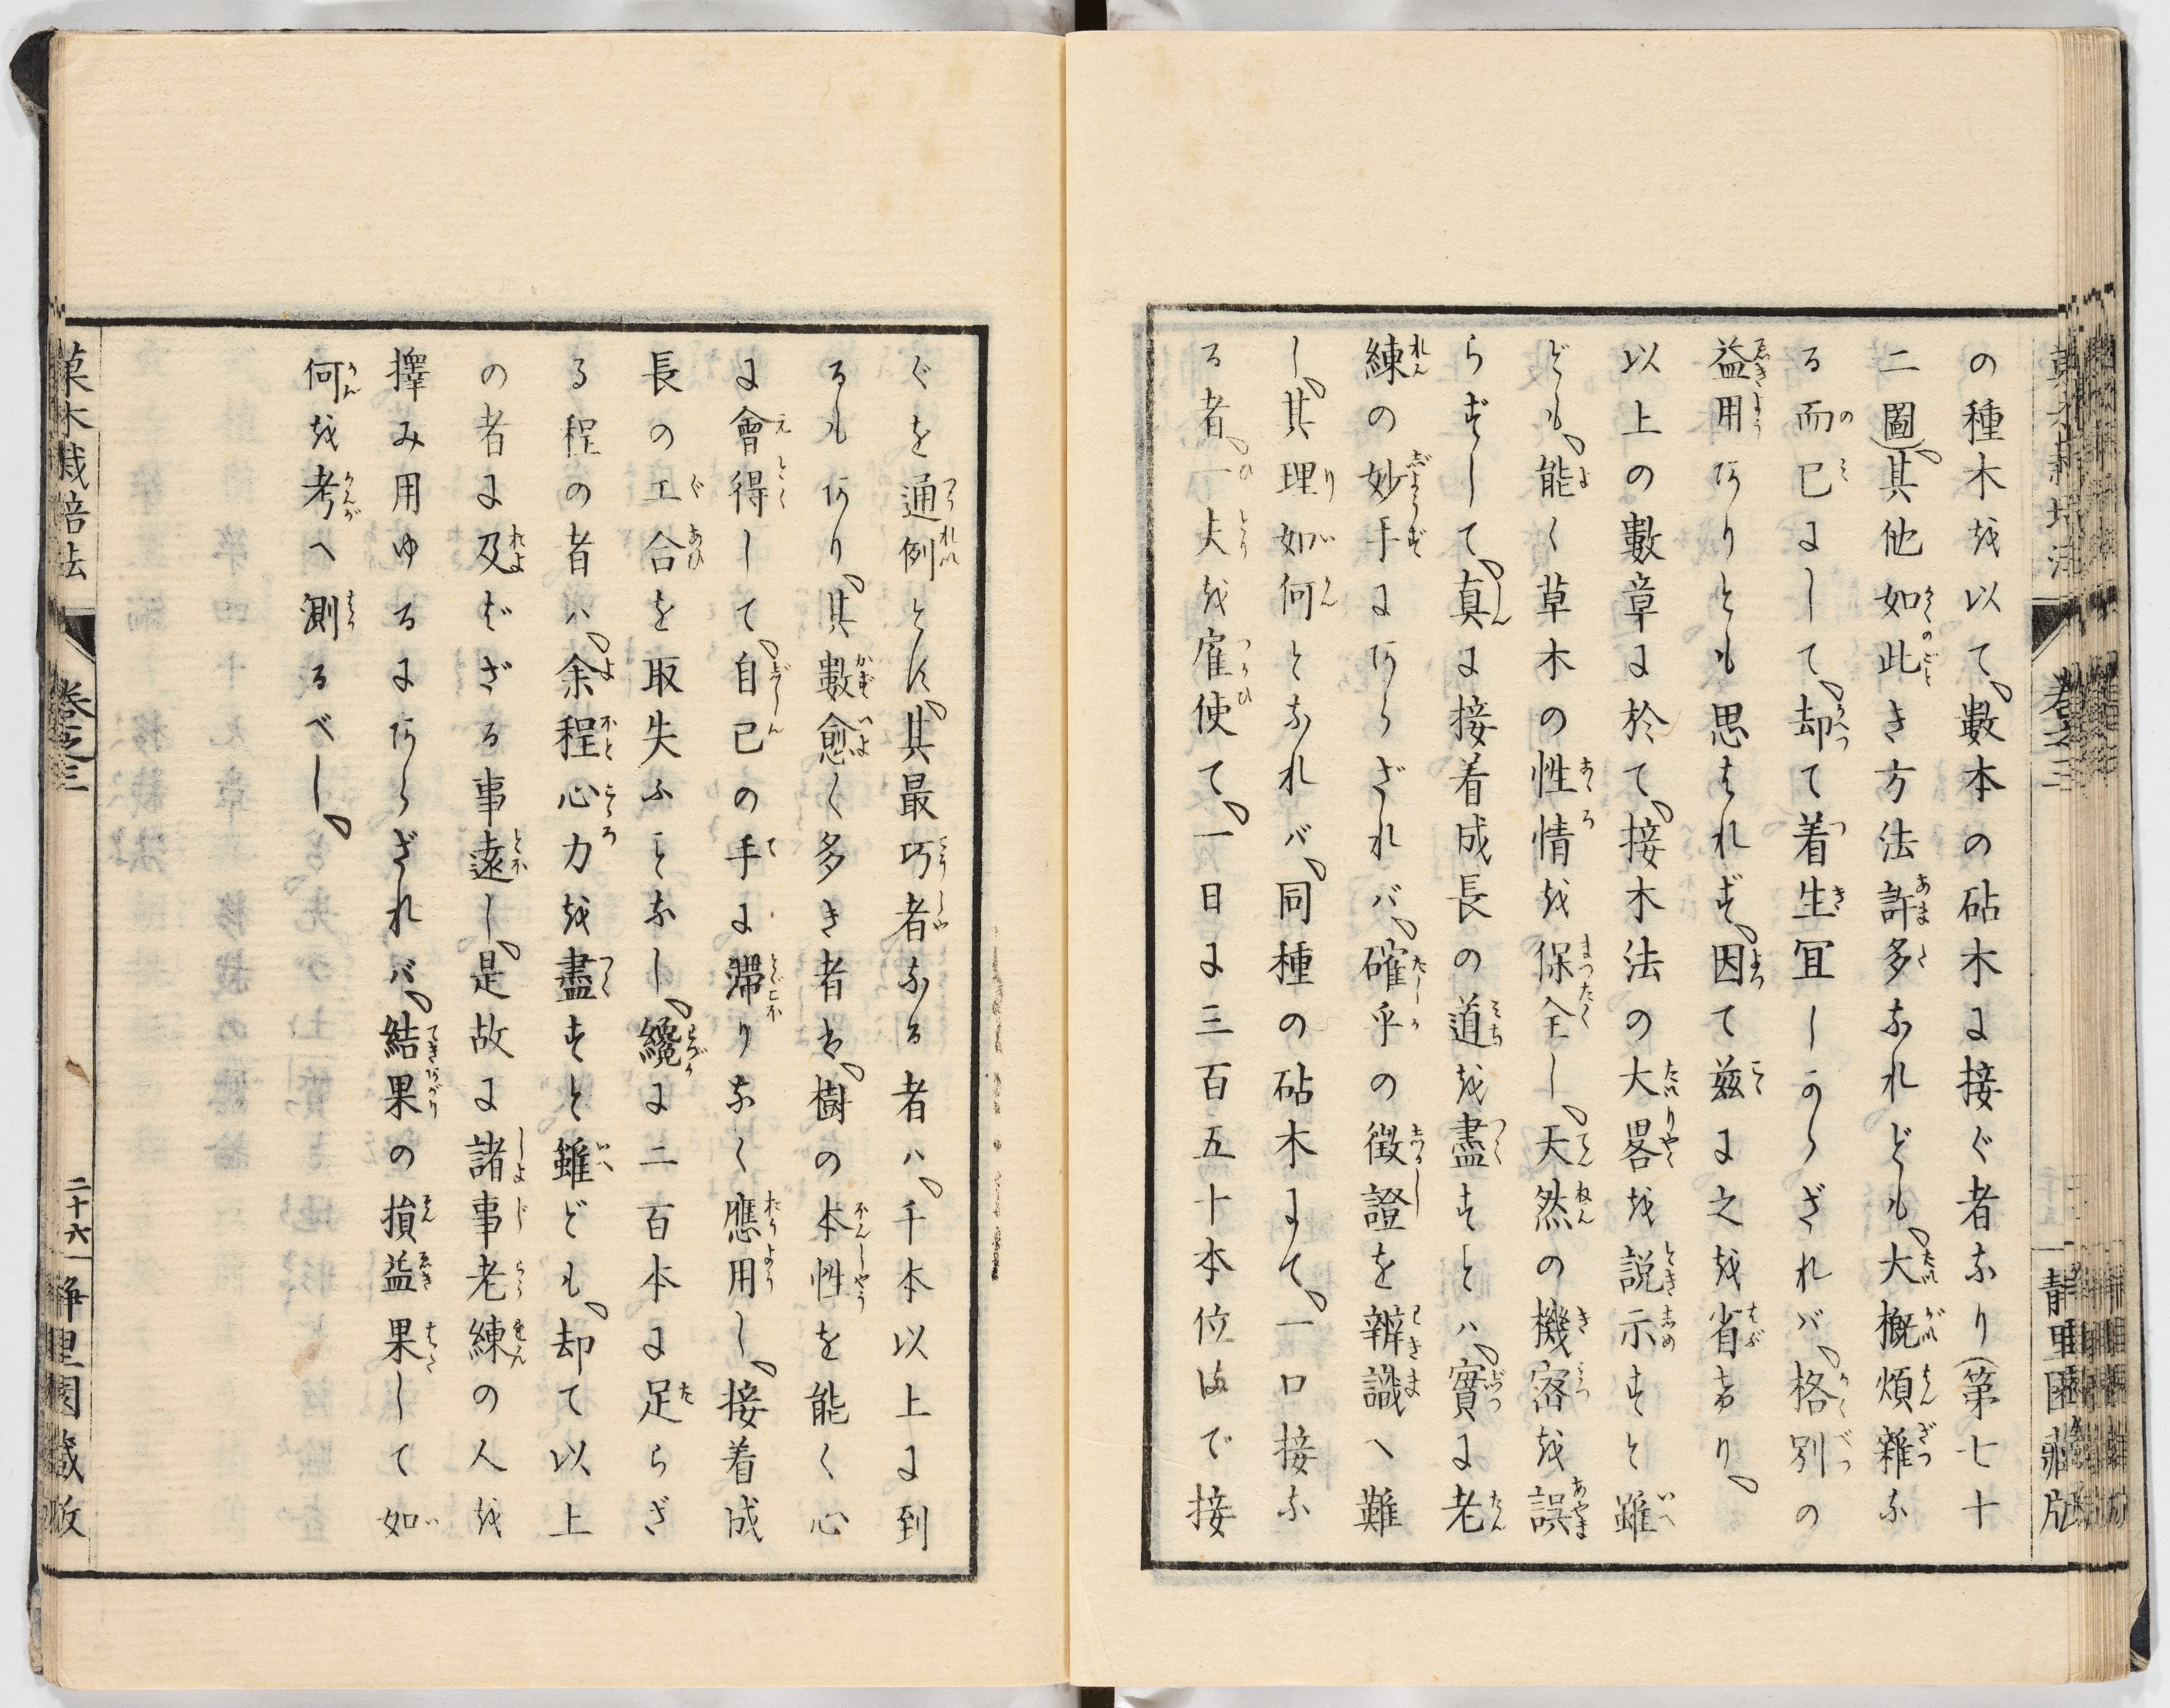 の種木を以て、數本の砧木に接ぐ者なり(第七十
二圖)、其他如此き方法許多なれども、大概煩雜な
る而已にして、却て着生冝しからざれバ、格別の
益用ありとも思はれず、因て茲に之を省けり、
以上の數章に於て、接木法の大畧を説示すと雖
ども、能く草木の性情を保全し、天然の機密を誤
らずして、真に接着成長の道を盡すとハ、實に老
練の妙手にあらざれバ、確乎の徴證を辨識へ難
し、其理如何となれバ、同種の砧木にて、一口接な
る者、一夫を雇使て、一日に三百五十本位まで接
ぐを通例とす、其最巧者なる者ハ、千本以上に到
るもあり、其數愈く多き者は、樹の本性を能く心
に會得して、自己の手に滯りなく應用し、接着成
長の工合を取失ふことなし、纔に二百本に足らざ
る程の者ハ、余程心力を盡すと雖ども、却て以上
の者に及ばざる事遠し、是故に諸事老練の人を
擇み用ゆるにあらざれバ、結果の損益果して如
何を考へ測るべし、
菓木栽培法 卷之三 二十六 静里園藏版